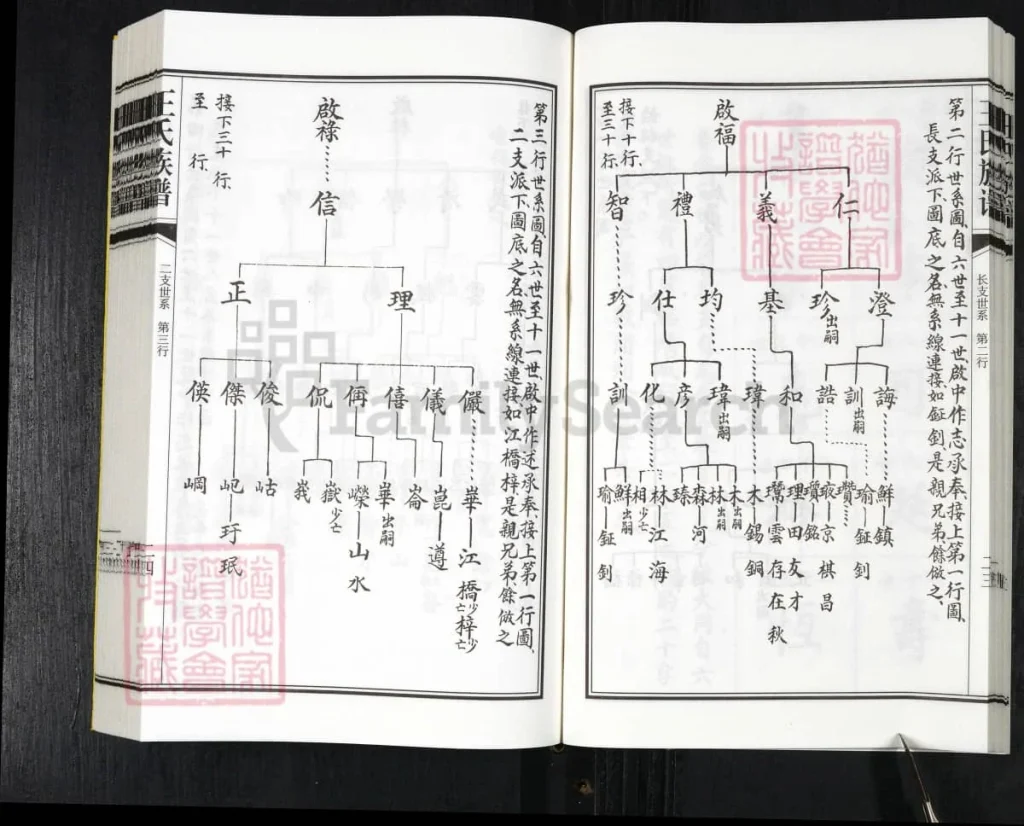 第二行世系圖、自六世至十一世、啟中作志承奉、接上第一行圖、
長支派下圖底之名無系線連接如鉦釗是親兄弟、餘倣之、
啟福
仁 義 禮 智
澄 珍出嗣 基 均 仕 珍
誨 訓出嗣 誥 和 瑋 瑋出嗣 彥 化 訓
鮮 瑜 瓚 琅 瓊 理 瓀 木 木出嗣 林出嗣 森 臻 林 相少亡 鮮出嗣 瑜
鎮 鉦 釗 京 棋 昌 銘 田 友 才 雲 存 在 秋 錫 銅 河 江 海 鉦 釗
接下十行、
至三十行、
王氏族譜
长支世系 第二行
二三
第三行世系圖、自六世至十一世、啟中作述承奉、接上第一行圖、
二支派下圖底之名無系線連接如江橋梓是親兄弟餘倣之
啟祿
信
理 正
儼 儀 僖 偁 侃 俊 傑 偀
華 崑 崙 華出嗣 嶸 嶽少亡 峩 岵 屺 峒
江 橋少亡 梓少亡 遵 山 水 玗 珉
接下三十行、
至 行、
王氏族譜
二支世系 第三行
二四
猶他家
譜學會
收藏
猶他家
譜學會
收藏
FamilySearch